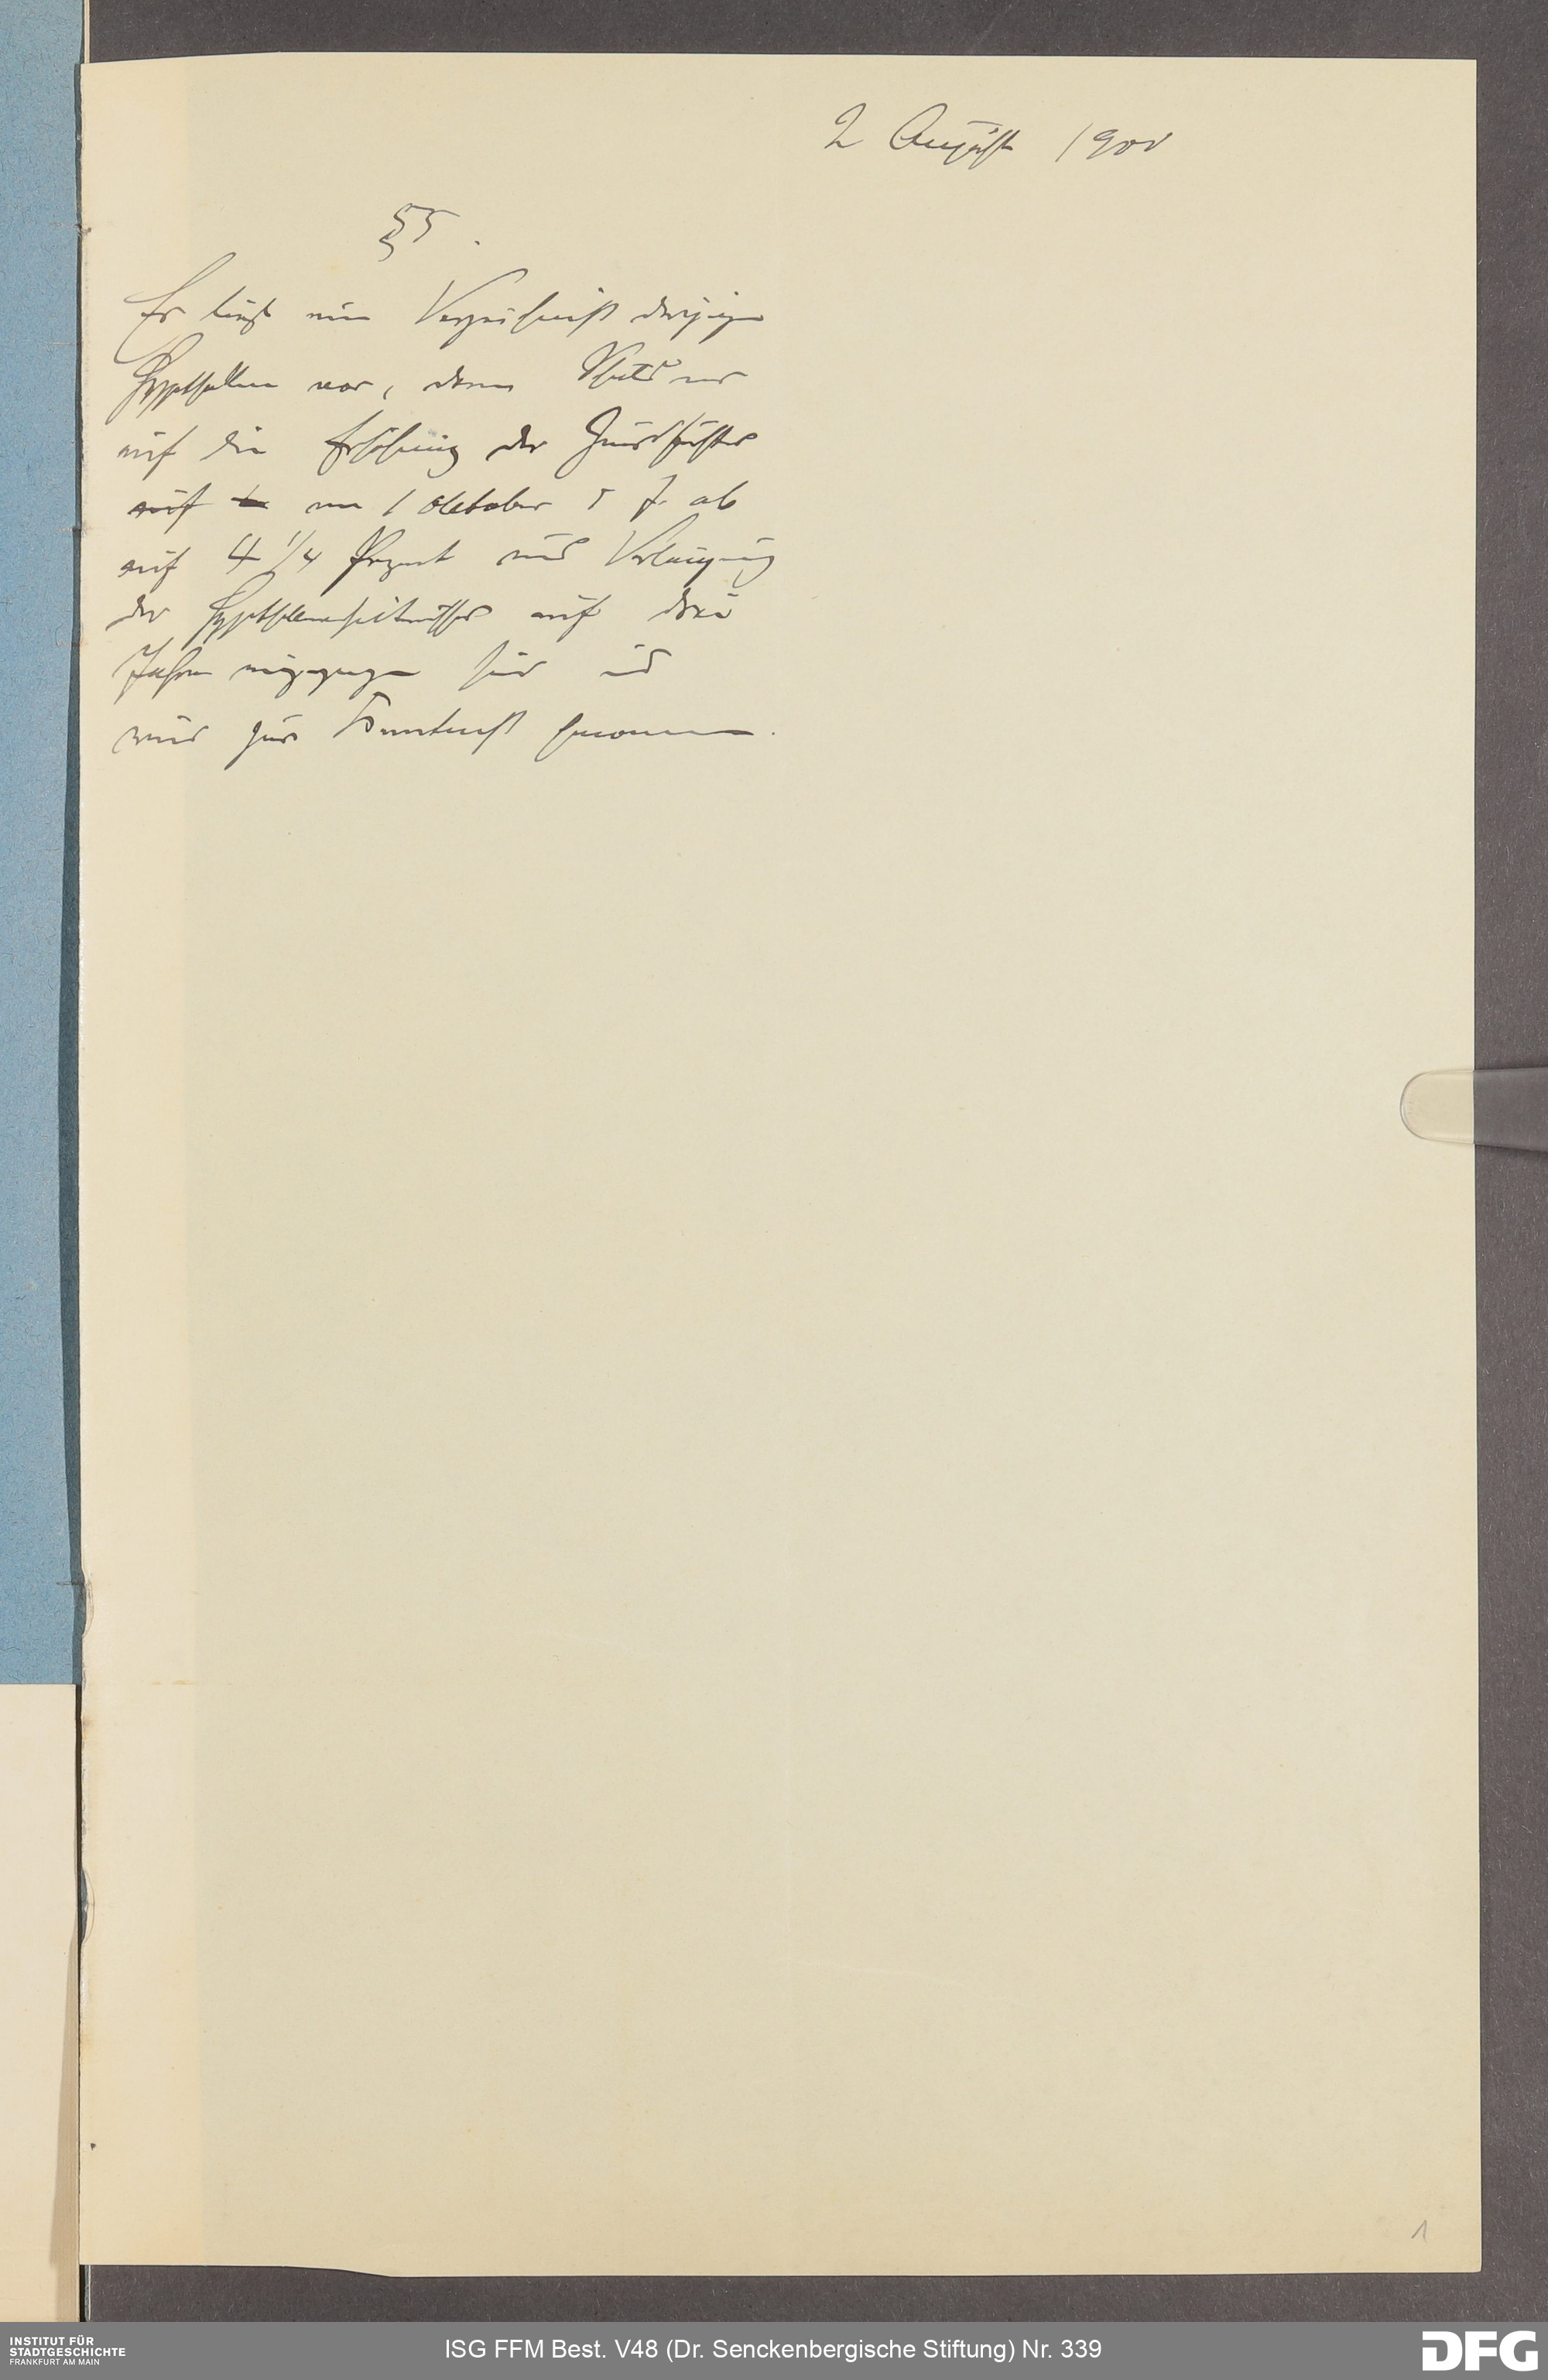 2 August 1900
§ 5.
Es liegt ein Verzeichniß derjenigen
Hypotheken vor, deren Schuldner
auf die Erhöhung des Zinsfußes
auf vom 1 Oktober d J. ab
auf 4 1/4 Prozent und Verlängerung
der Hypothekenverhältnisse auf drei
Jahre eingegangen sind und
wird zur Kenntniß genommen.
1
INSTITUT FÜR
STADTGESCHICHTE
FRANKFURT AM MAIN
ISG FFM Best. V48 (Dr. Senckenbergische Stiftung) Nr. 339
DFG